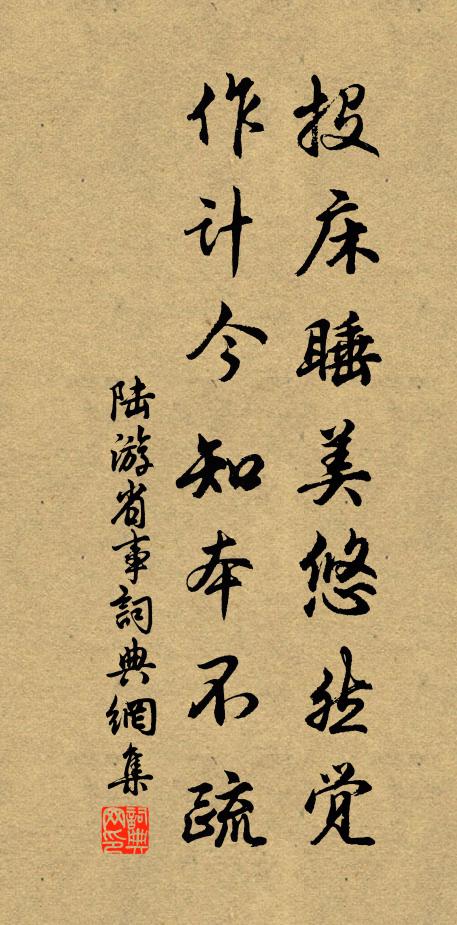 投床睡美悠然觉
作计今知本不疏
陆游省事詞典網集
詞典网印